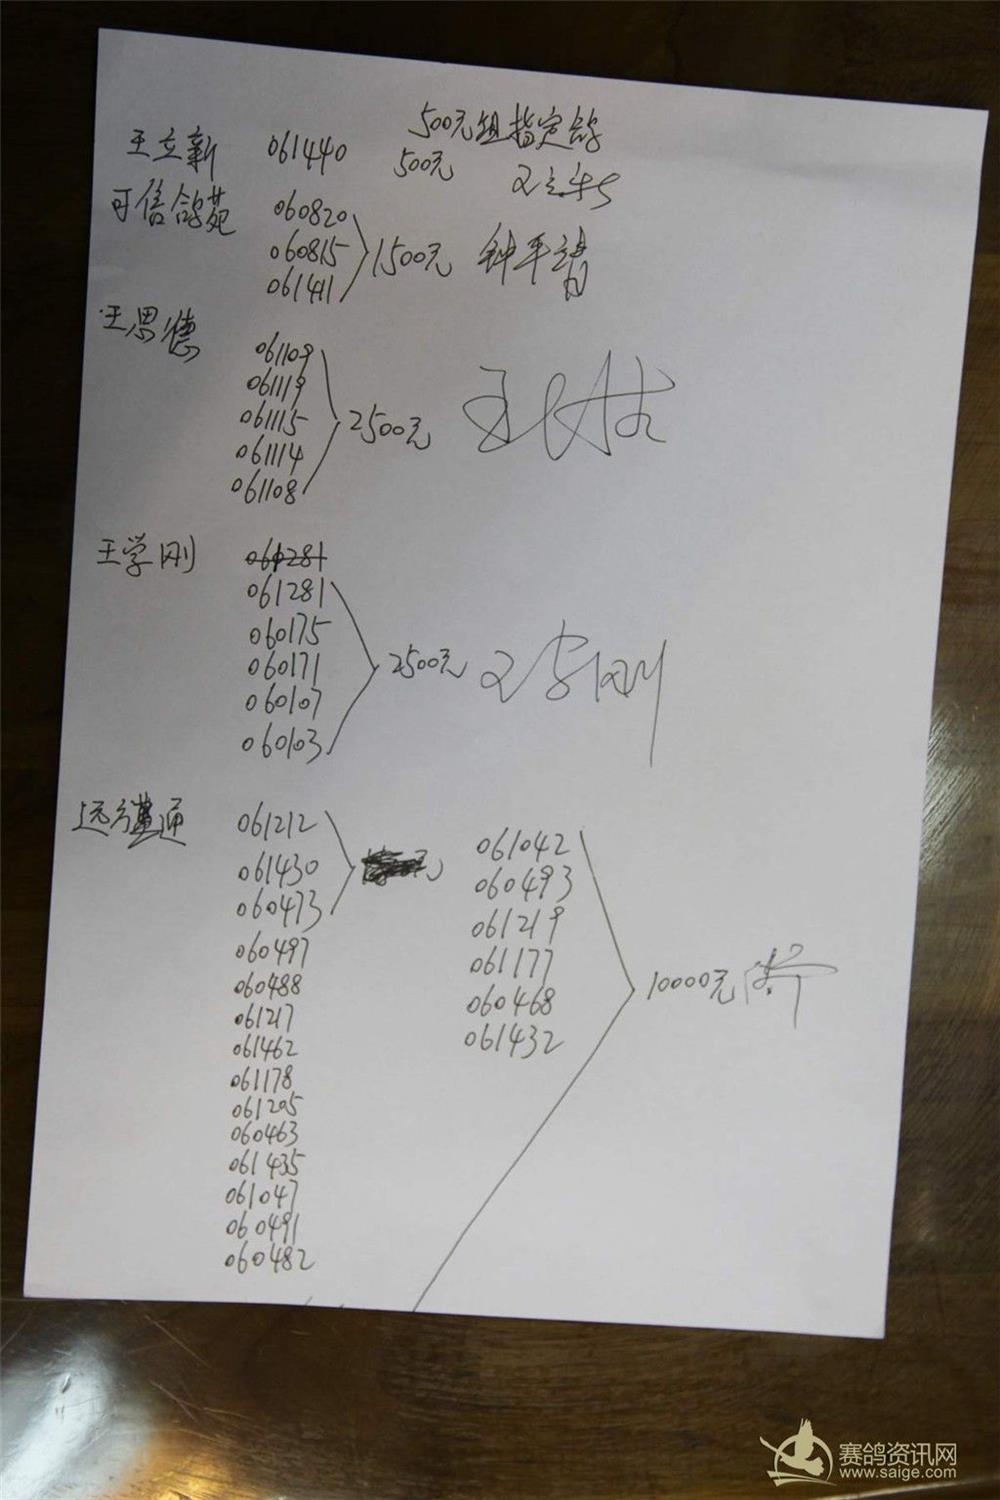 500元组指定鸽
王立新 061440 500元 王立新
可售鸽苑 060820
060815 1500元 钟平靖
061411
王思德
061109
061119
061115 2500元
061114
061108
王学刚 061281
061281
060175
060171 2500元 王学刚
060107
060103
远方 通 061212
061430 元
060473
060497
060488
061217
061462
061178
061205
060463
061435
061047
060491
060482
061042
060493
061219
061177 10000元
060468
061432
赛鸽资讯网
www.saige.com